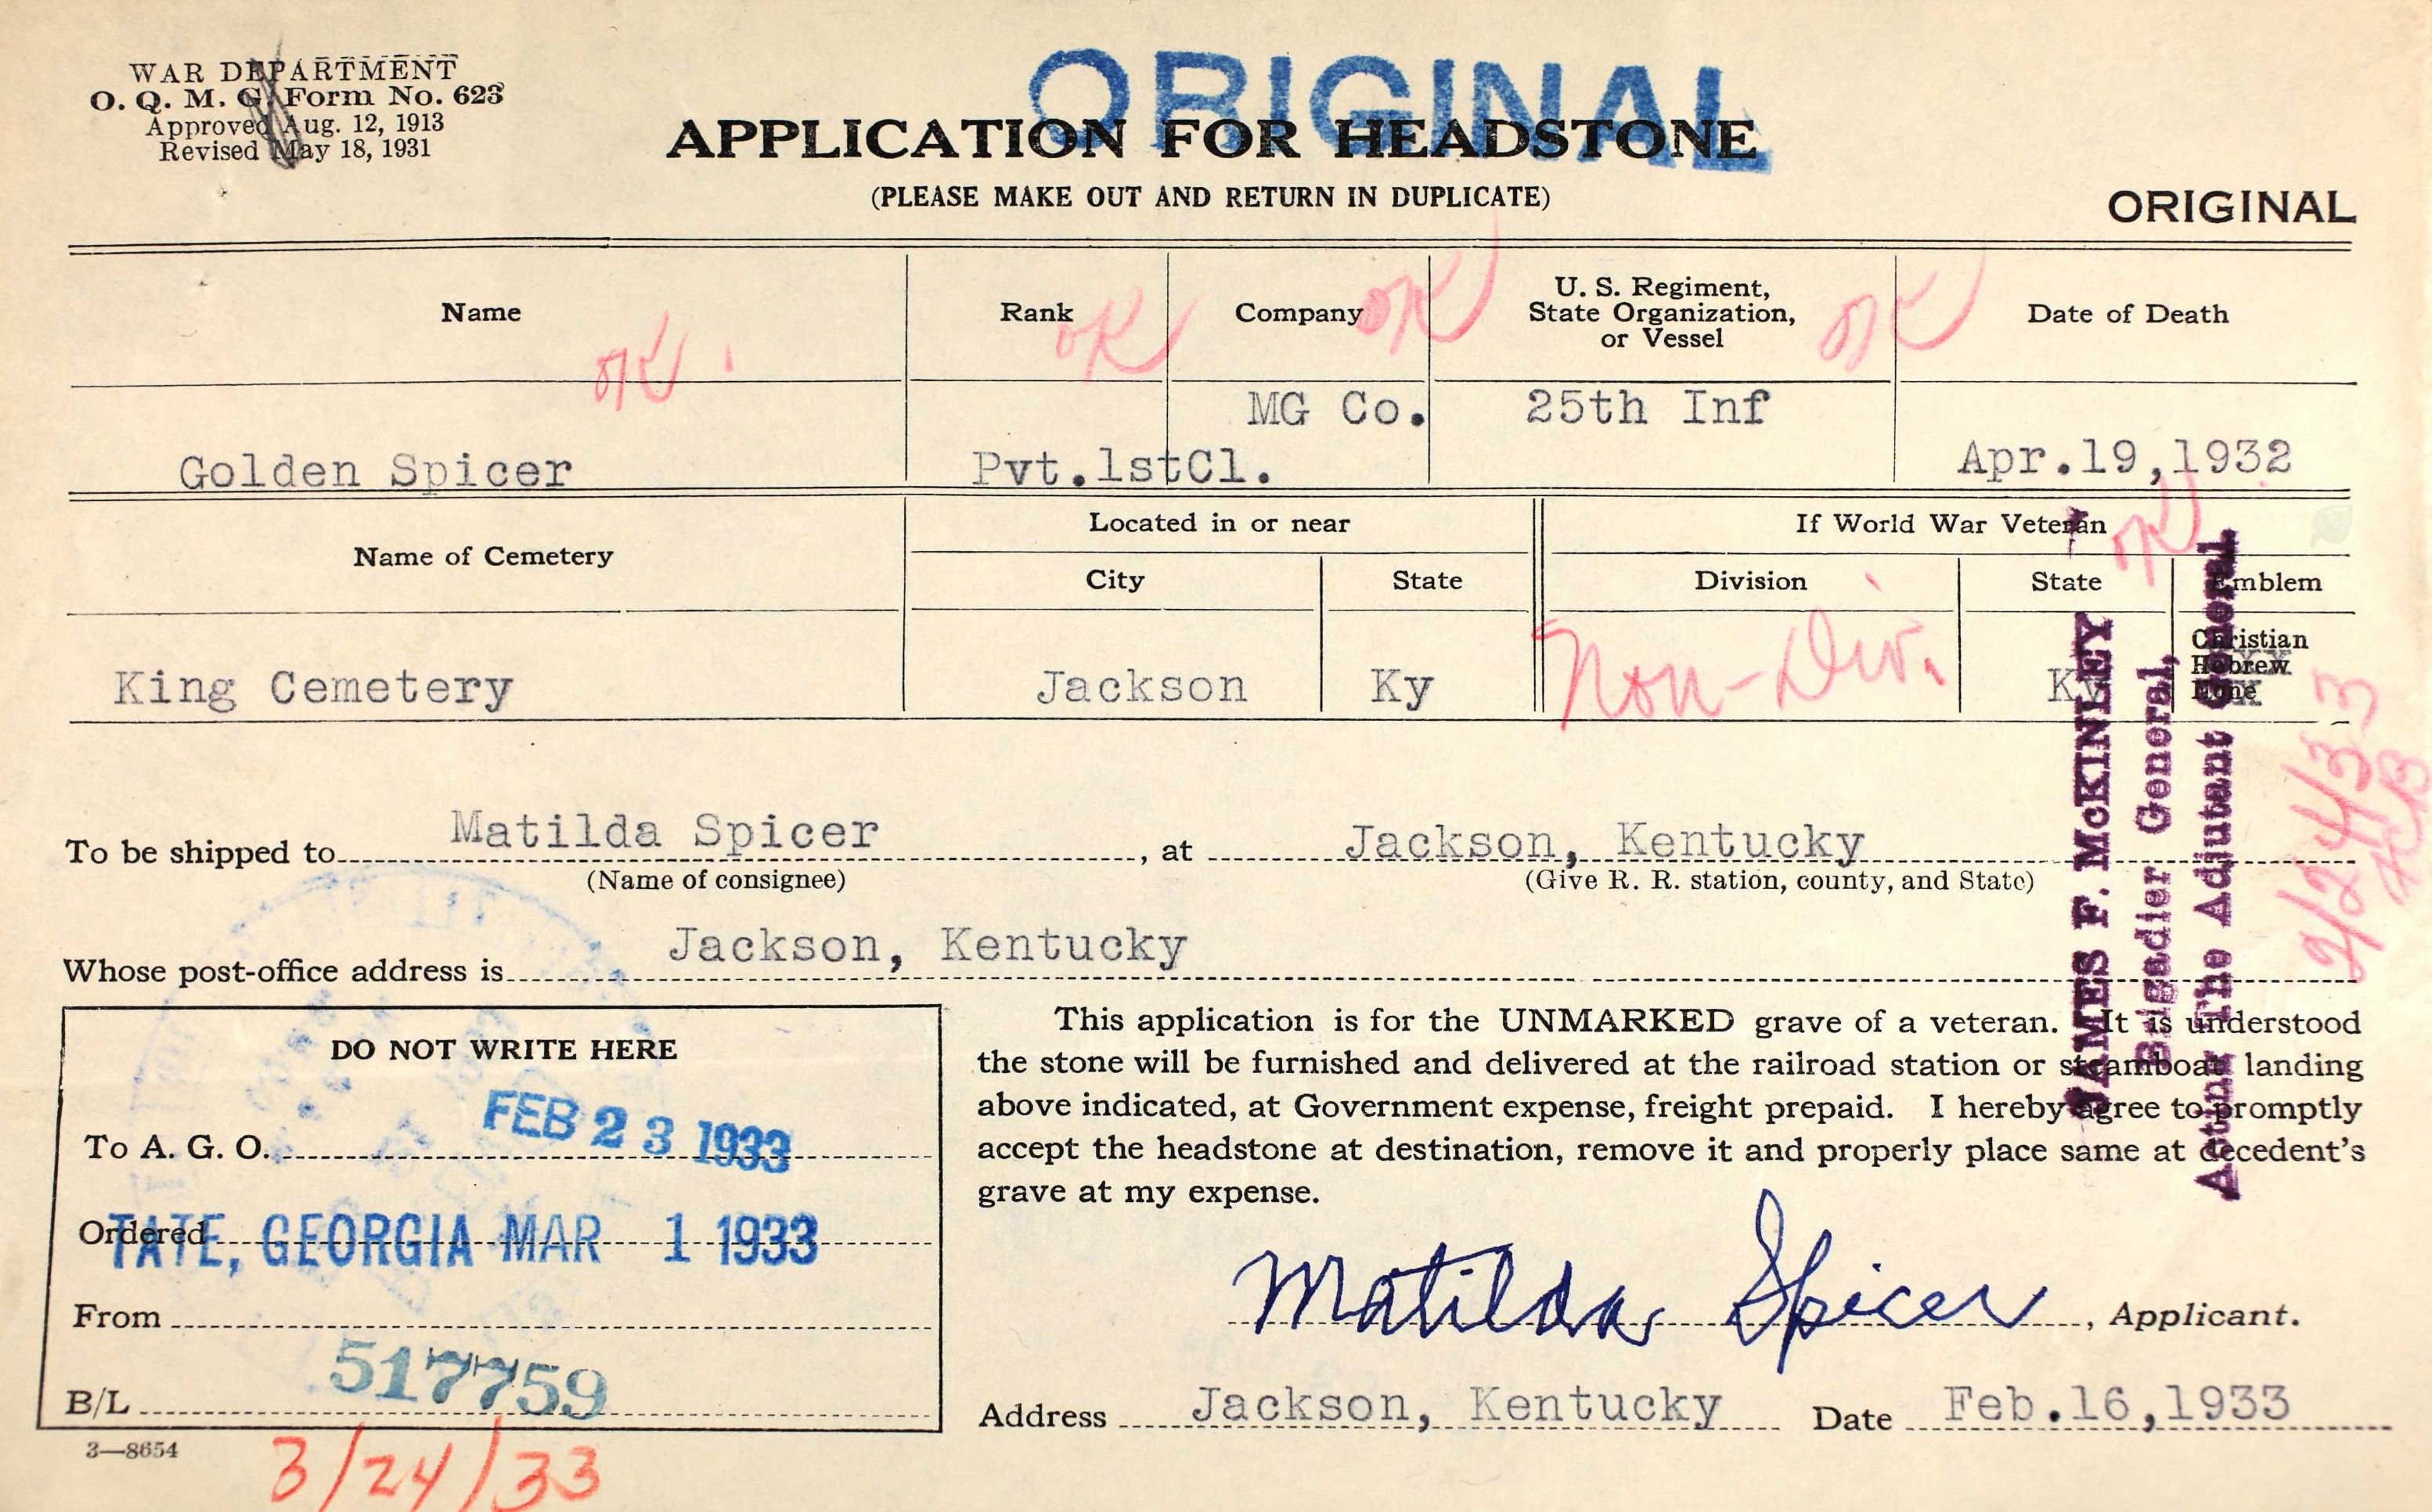 WAR DEPARTMENT
O. Q. M. G. Form No. 623
Approved Aug. 12, 1913
Revised May 18, 1931
ORIGINAL
APPLICATION FOR HEADSTONE
(PLEASE MAKE OUT AND RETURN IN DUPLICATE)
ORIGINAL
Name
OK
Rank
OK
Company
OK
U. S. Regiment,
State Organization,
or Vessel
OK
Date of Death
Golden Spicer
Pvt.1stCl.
MG Co.
25th Inf
Apr.19,1932
OK
Name of Cemetery
Located in or near
City
State
If World War Veteran
Division
State
Emblem
King Cemetery
Jackson
Ky
Non-Div.
Ky
Christian
Hebrew
None
JAMES F. McKINLEY
Brigadier General,
Acting The Adjutant General.
2/24/33
To be shipped to Matilda Spicer, at Jackson, Kentucky
(Name of consignee) (Give R. R. station, county, and State)
Whose post-office address is Jackson, Kentucky
DO NOT WRITE HERE
To A. G. O. FEB 23 1933
Ordered TATE, GEORGIA MAR 1 1933
From
B/L 517759
3—8654
3/24/33
This application is for the UNMARKED grave of a veteran. It is understood
the stone will be furnished and delivered at the railroad station or steamboat landing
above indicated, at Government expense, freight prepaid. I hereby agree to promptly
accept the headstone at destination, remove it and properly place same at decedent's
grave at my expense.
Matilda Spicer, Applicant.
Address Jackson, Kentucky Date Feb.16,1933